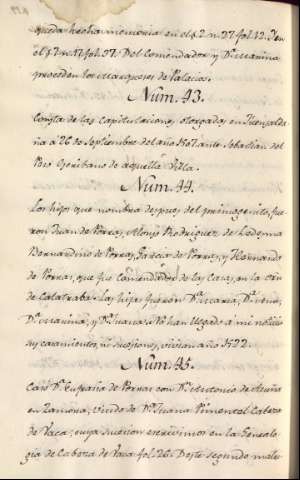 queda hecha memoria en el §. 2. n. 27. fol. 12. Y en
el §. 7. n. 17. fol. 37. Del Comendador y Dª. Marina
proceden los Marqueses de Palacios.
Num. 43.
Consta de las Capitulaciones otorgadas en Fuensalda
ña a 26 de Septiembre del año 1507. ante Sebastian del
Poso Escribano de aquella Villa.
Num. 44.
Los hijos que nombra despues del primogenito, fue
ron Juan de Porras, Alonso Rodriguez de Ledesma
Bernardino de Porras, Garcia de Porras, y Hernando
de Porras, que fue Comendador de las Casas, en la orn
de Calatraba. Las hijas fueron Dª. Maria, Dª.
Dª. Marina, y Dª. Juana. No han llegado a mi noticia
sus casamientos, ni succesiones, vivian año 1522.
Num. 45.
Casó Dª. Eufrasia de Porras con Dn. Antonio de Acuña
en Zamora, viudo de Dª. Juana Pimentel Cabeza
de Vaca; cuya succesion escrivimos en la Genealo
gia de Cabeza de Vaca fol. 26. Deste segundo matri